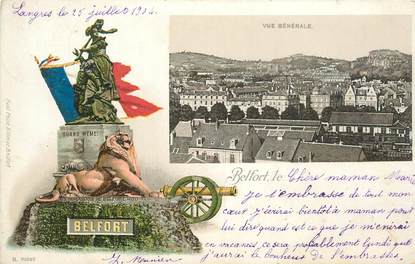 Langres le 25 juillet 1904
VUE GÉNÉRALE.
QUAND MÊME
BELFORT
Belfort, le
Chère maman Marie
je t'embrasse de tout mon
cœur j'écrirai bientôt à maman pour
lui dire quand est ce que je m'enirai
en vacances, ce sera probablement lundi que
j'aurai le bonheur de t'embrasser.